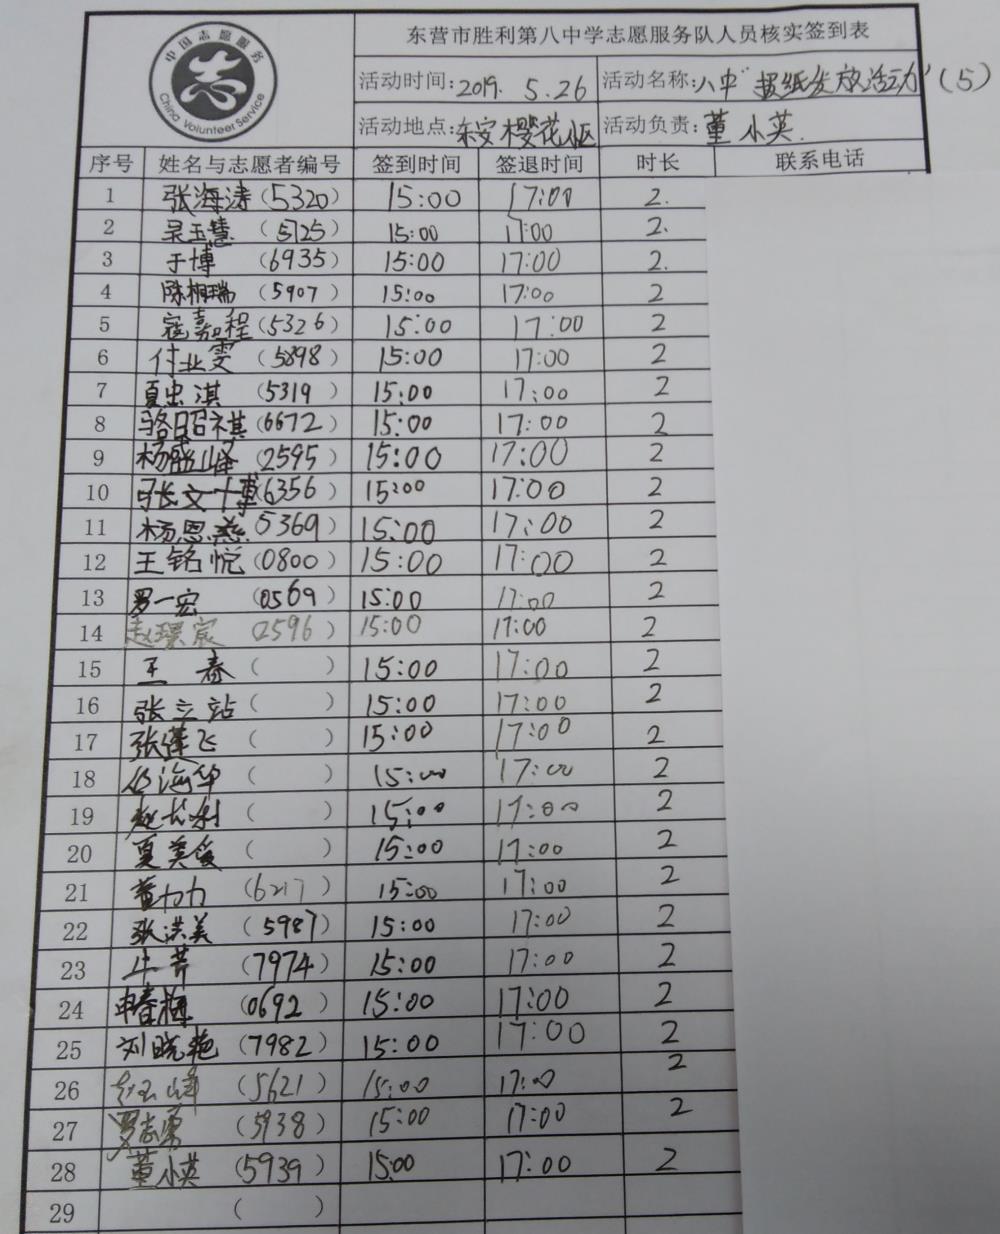 中国志愿服务
China Volunteer Service
东营市胜利第八中学志愿服务队人员核实签到表
活动时间:2019. 5.26 活动名称:八中"报纸发放活动"(5)
活动地点:东安樱花小区 活动负责:董小英.
序号 姓名与志愿者编号 签到时间 签退时间 时长 联系电话
1 张海涛(5320) 15:00 17:00 2.
2 吴玉慧(5725) 15:00 17:00 2.
3 于博(6935) 15:00 17:00 2.
4 陈桐瑞(5907) 15:00 17:00 2
5 寇嘉程(5326) 15:00 17:00 2
6 付业雯(5898) 15:00 17:00 2
7 夏忠淇(5319) 15:00 17:00 2
8 骆昭祺(6672) 15:00 17:00 2
9 杨盛峰(2595) 15:00 17:00 2
10 张文博(6356) 15:00 17:00 2
11 杨恩慈(5369) 15:00 17:00 2
12 王铭悦(0800) 15:00 17:00 2
13 罗一宏(0569) 15:00 17:00 2
14 赵璟宸(2596) 15:00 17:00 2
15 王春( ) 15:00 17:00 2
16 张立站( ) 15:00 17:00 2
17 张莲飞( ) 15:00 17:00 2
18 海华( ) 15:00 17:00 2
19 赵长利( ) 15:00 17:00 2
20 夏美爱( ) 15:00 17:00 2
21 董力力(6217) 15:00 17:00 2
22 张洪美(5987) 15:00 17:00 2
23 (7974) 15:00 17:00 2
24 申春梅(0692) 15:00 17:00 2
25 刘晓艳(7982) 15:00 17:00 2
26 玉峰(5621) 15:00 17:00 2
27 罗志勇(5938) 15:00 17:00 2
28 董小英(5939) 15:00 17:00 2
29 ( )